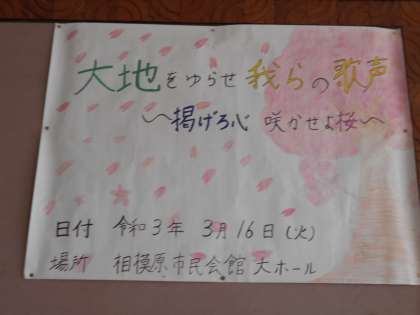 大地をゆらせ 我らの歌声
〜掲げろ心 咲かせよ桜〜
日付 令和3年 3月16日(火)
場所 相模原市民会館 大ホール